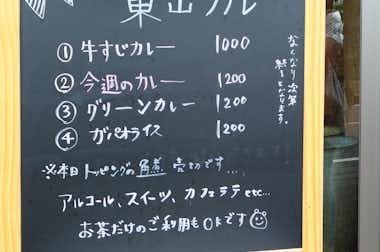 東山カレー
① 牛すじカレー 1000
② 今週のカレー 1200
③ グリーンカレー 1200
④ ガパオライス 1200
なくなり次第
終了となります。
※本日トッピングの角煮 売切です…
アルコール、スイーツ、カフェラテ etc…
お茶だけのご利用もOKです